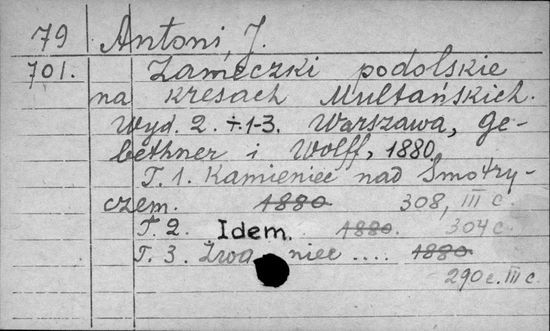 79 Antoni, J.
701. Zameczki podolskie
na kresach Multańskich.
Wyd. 2. t. 1-3. Warszawa, Ge-
bethner i Wolff, 1880.
T. 1. Kamieniec nad Smotry-
czem. 1880 308, III c.
T. 2. Idem. 1880. 304 c.
T. 3. niec .... 1880
290 c. III c.